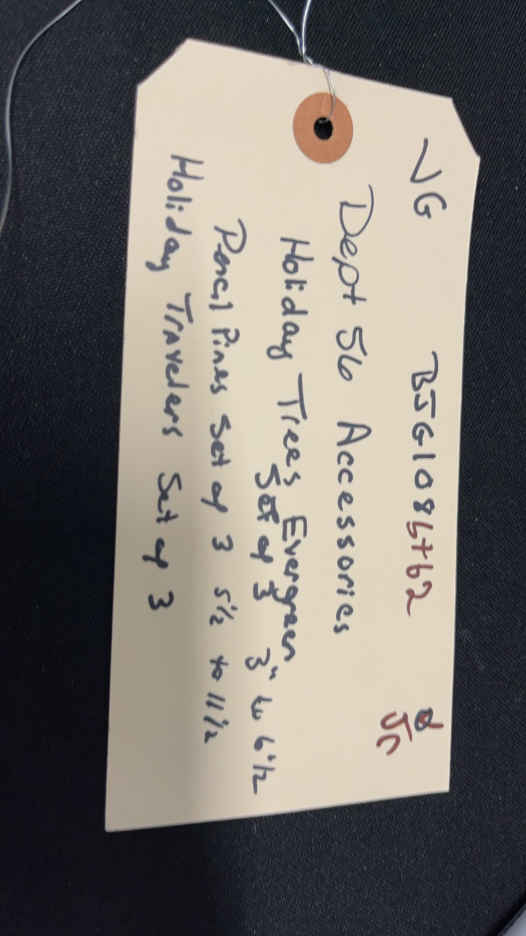 VG BJG1086+62
Jn
Dept 56 Accessories
Holiday Trees Evergreen
Set of 3 3" to 6 1/2
Pencil Pines Set of 3 5 1/2 to 11 1/2
Holiday Travelers Set of 3